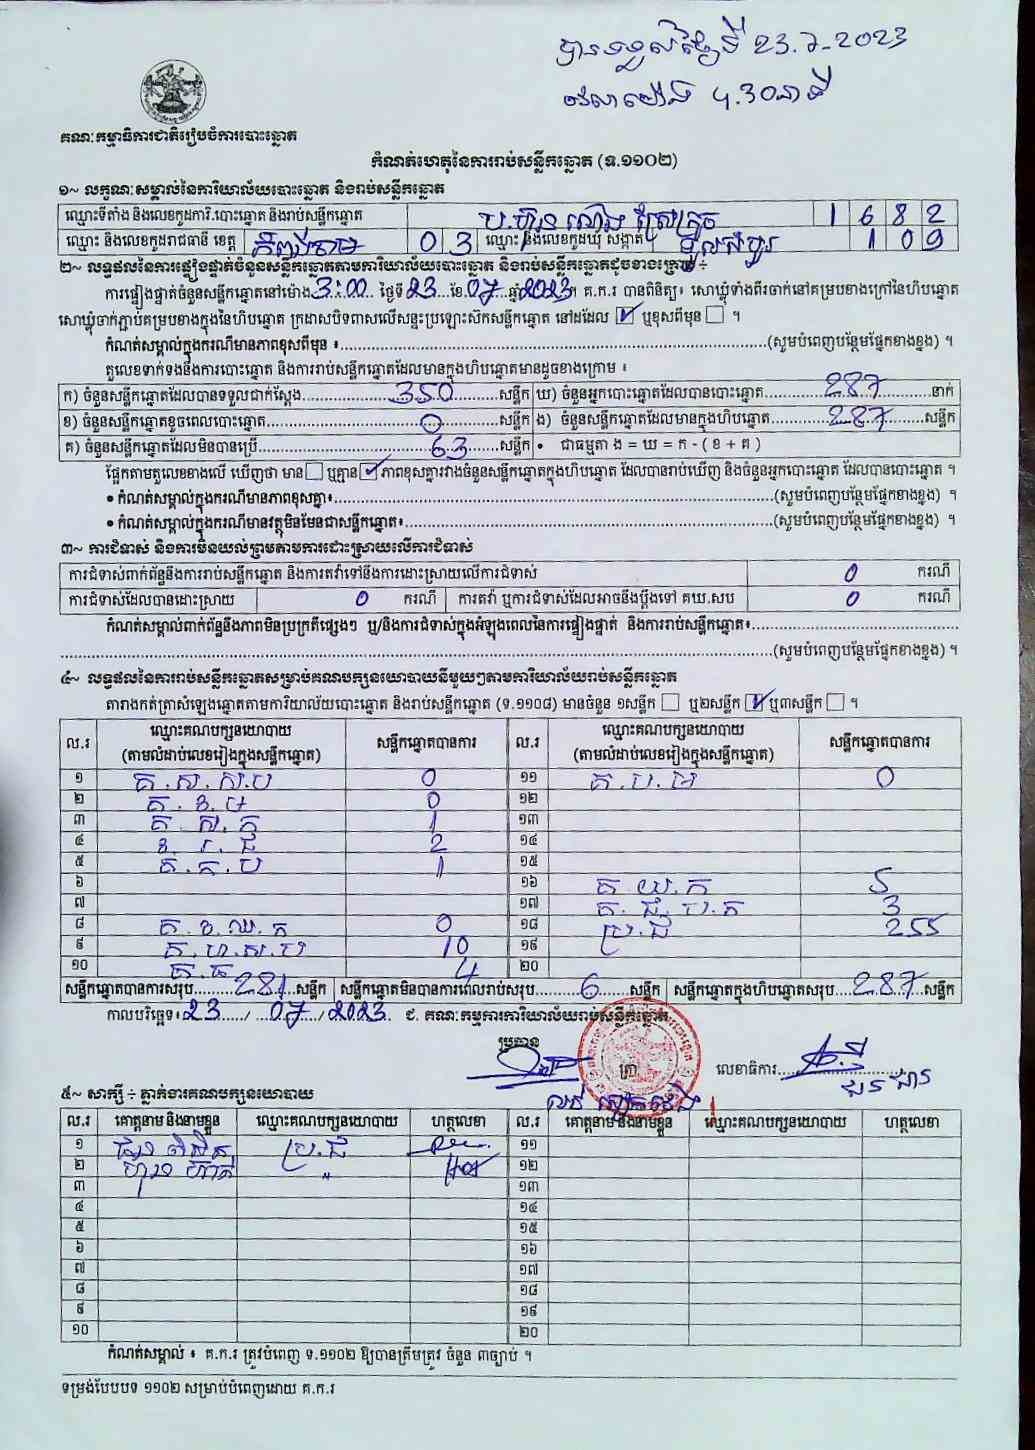 បានទទួលថ្ងៃទី 23.7-2023
វេលាម៉ោង 4.30នាទី
គណៈកម្មាធិការជាតិរៀបចំការបោះឆ្នោត
កំណត់ហេតុនៃការរាប់សន្លឹកឆ្នោត (ទ.១១០២)
១~ លក្ខណៈសម្គាល់នៃការិយាល័យបោះឆ្នោត និងរាប់សន្លឹកឆ្នោត
ឈ្មោះទីតាំង និងលេខកូដការិ.បោះឆ្នោត និងរាប់សន្លឹកឆ្នោត 1 6 8 2
ឈ្មោះ និងលេខកូដរាជធានី ខេត្ត កំពង់ចាម 0 3 ឈ្មោះ និងលេខកូដឃុំ សង្កាត់ 1 0 9
២~ លទ្ធផលនៃការផ្ទៀងផ្ទាត់ចំនួនសន្លឹកឆ្នោតតាមការិយាល័យបោះឆ្នោត និងរាប់សន្លឹកឆ្នោតដូចខាងក្រោម ÷
ការផ្ទៀងផ្ទាត់ចំនួនសន្លឹកឆ្នោតនៅម៉ោង 3:00 ថ្ងៃទី 23 ខែ 07 ឆ្នាំ 2023។ គ.ក.រ បានពិនិត្យ៖ សោឃ្លុំទាំងពីរចាក់នៅគម្របខាងក្រៅនៃហិបឆ្នោត
សោឃ្លុំចាក់ភ្ជាប់គម្របខាងក្នុងនៃហិបឆ្នោត ក្រដាសបិទពាសលើសន្ទះប្រឡោះស៊កសន្លឹកឆ្នោត នៅដដែល ឬខុសពីមុន ។
កំណត់សម្គាល់ក្នុងករណីមានភាពខុសពីមុន ៖ (សូមបំពេញបន្ថែមផ្នែកខាងខ្នង) ។
តួលេខទាក់ទងនឹងការបោះឆ្នោត និងការរាប់សន្លឹកឆ្នោតដែលមានក្នុងហិបឆ្នោតមានដូចខាងក្រោម ៖
ក) ចំនួនសន្លឹកឆ្នោតដែលបានទទួលជាក់ស្តែង 350 សន្លឹក ឃ) ចំនួនអ្នកបោះឆ្នោតដែលបានបោះឆ្នោត 287 នាក់
ខ) ចំនួនសន្លឹកឆ្នោតខូចពេលបោះឆ្នោត 0 សន្លឹក ង) ចំនួនសន្លឹកឆ្នោតដែលមានក្នុងហិបឆ្នោត 287 សន្លឹក
គ) ចំនួនសន្លឹកឆ្នោតដែលមិនបានប្រើ 63 សន្លឹក • ជាធម្មតា ង = ឃ = ក - ( ខ + គ )
ផ្អែកតាមតួលេខខាងលើ ឃើញថា មាន ឬគ្មាន ភាពខុសគ្នារវាងចំនួនសន្លឹកឆ្នោតក្នុងហិបឆ្នោត ដែលបានរាប់ឃើញ និងចំនួនអ្នកបោះឆ្នោត ដែលបានបោះឆ្នោត ។
• កំណត់សម្គាល់ក្នុងករណីមានភាពខុសគ្នា៖ (សូមបំពេញបន្ថែមផ្នែកខាងខ្នង) ។
• កំណត់សម្គាល់ក្នុងករណីមានវត្ថុមិនមែនជាសន្លឹកឆ្នោត៖ (សូមបំពេញបន្ថែមផ្នែកខាងខ្នង) ។
៣~ ការជំទាស់ និងការមិនយល់ព្រមតាមការដោះស្រាយលើការជំទាស់
ការជំទាស់ពាក់ព័ន្ធនឹងការរាប់សន្លឹកឆ្នោត និងការតវ៉ាទៅនឹងការដោះស្រាយលើការជំទាស់ 0 ករណី
ការជំទាស់ដែលបានដោះស្រាយ 0 ករណី ការតវ៉ា ឬការជំទាស់ដែលអាចនឹងប្តឹងទៅ គឃ.សប 0 ករណី
កំណត់សម្គាល់ពាក់ព័ន្ធនឹងភាពមិនប្រក្រតីផ្សេងៗ ឬ/និងការជំទាស់ក្នុងអំឡុងពេលនៃការផ្ទៀងផ្ទាត់ និងការរាប់សន្លឹកឆ្នោត៖
(សូមបំពេញបន្ថែមផ្នែកខាងខ្នង) ។
៤~ លទ្ធផលនៃការរាប់សន្លឹកឆ្នោតសម្រាប់គណបក្សនយោបាយនីមួយៗតាមការិយាល័យរាប់សន្លឹកឆ្នោត
តារាងកត់ត្រាសំឡេងឆ្នោតតាមការិយាល័យបោះឆ្នោត និងរាប់សន្លឹកឆ្នោត (ទ.១១០៨) មានចំនួន ១សន្លឹក ឬ២សន្លឹក ឬ៣សន្លឹក ។
ល.រ ឈ្មោះគណបក្សនយោបាយ (តាមលំដាប់លេខរៀងក្នុងសន្លឹកឆ្នោត) សន្លឹកឆ្នោតបានការ ល.រ ឈ្មោះគណបក្សនយោបាយ (តាមលំដាប់លេខរៀងក្នុងសន្លឹកឆ្នោត) សន្លឹកឆ្នោតបានការ
១ គ.ស.ស.ប 0 ១១ គ.ប.ម 0
២ គ.ខ.ម 0 ១២
៣ គ.ស.ក 1 ១៣
៤ ខ.រ.ជ 2 ១៤
៥ គ.ក.ប 1 ១៥
៦ ១៦ គ.យ.ក 5
៧ ១៧ គ.ជ.ប.ក 3
៨ 0 ១៨ ប្រ.ជ 255
៩ គ.ហ.ស.ប 10 ១៩
១០ គ.ធ 4 ២០
សន្លឹកឆ្នោតបានការសរុប 281 សន្លឹក សន្លឹកឆ្នោតមិនបានការពេលរាប់សរុប 6 សន្លឹក សន្លឹកឆ្នោតក្នុងហិបឆ្នោតសរុប 287 សន្លឹក
កាលបរិច្ឆេទ៖ 23 / 07 / 2023 ជ. គណៈកម្មការការិយាល័យរាប់សន្លឹកឆ្នោត
ប្រធាន
ត្រា លេខាធិការ
៥~ សាក្សី ÷ ភ្នាក់ងារគណបក្សនយោបាយ
ល.រ គោត្តនាម និងនាមខ្លួន ឈ្មោះគណបក្សនយោបាយ ហត្ថលេខា ល.រ គោត្តនាម និងនាមខ្លួន ឈ្មោះគណបក្សនយោបាយ ហត្ថលេខា
១ ប្រ.ជ ១១
២ " ១២
៣ ១៣
៤ ១៤
៥ ១៥
៦ ១៦
៧ ១៧
៨ ១៨
៩ ១៩
១០ ២០
កំណត់សម្គាល់ ៖ គ.ក.រ ត្រូវបំពេញ ទ.១១០២ ឱ្យបានត្រឹមត្រូវ ចំនួន ៣ច្បាប់ ។
ទម្រង់បែបបទ ១១០២ សម្រាប់បំពេញដោយ គ.ក.រ